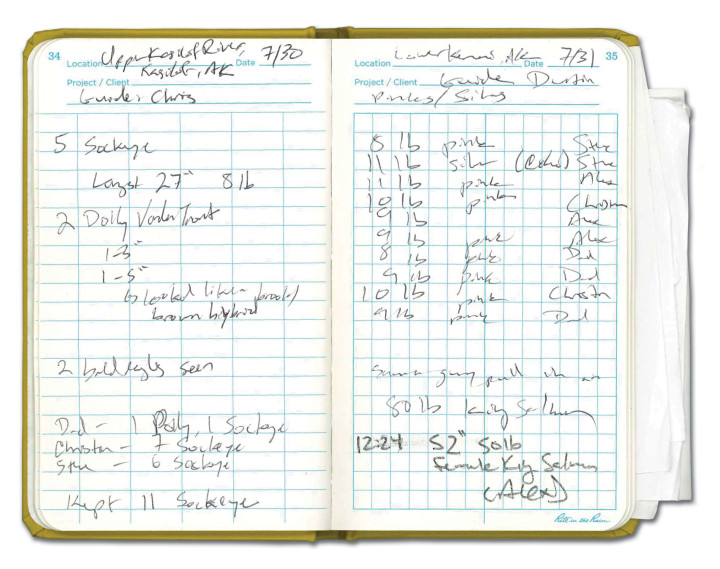 34
Location Upper Kasilof River, Date 7/30
Kasilof, AK
Project / Client
Guide: Chris
5 Sockeye
Largest 27" 8 lb
2 Dolly Varden Trout
1-3"
1-5"
looked like a brook/
brown hybrid
2 bald eagles seen
Dad - 1 Dolly, 1 Sockeye
Christin - 7 Sockeye
Steve - 6 Sockeye
Kept 11 Sockeye
35
Location Lower Kenai, AK Date 7/31
Project / Client Guide Dustin
Pinks / Silvers
8 lb pink Steve
11 lb silver (Coho) Steve
11 lb pink Alex
10 lb pink Christin
9 lb Alex
9 lb pink Alex
8 lb pink Dad
9 lb pink Dad
10 lb pink Christin
9 lb pink Dad
Saw a guy pull in an
80 lb King Salmon
12:24 52" 50lb
Female King Salmon
(Alex)
Rite in the Rain